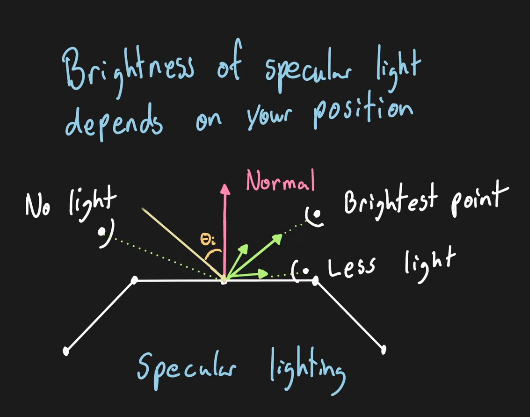 Brightness of specular light
depends on your position
Normal
No light
Brightest point
θi
Less light
Specular lighting